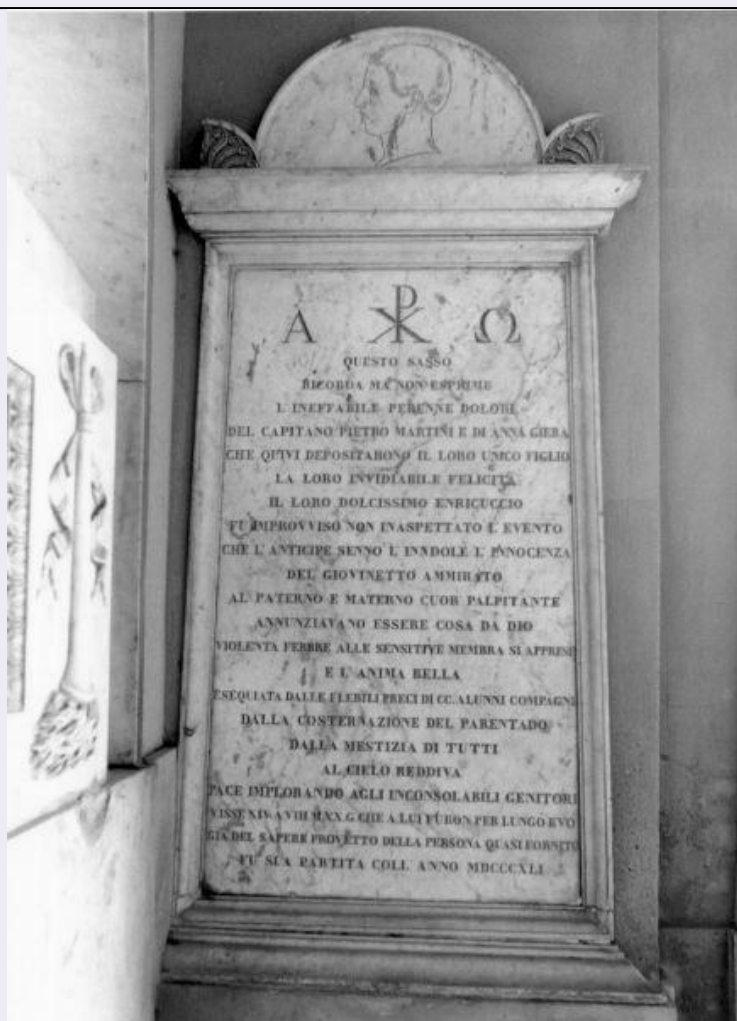 A ☧ Ω
QUESTO SASSO
RICORDA MA NON ESPRIME
L'INEFFABILE PERENNE DOLORE
DEL CAPITANO PIETRO MARTINI E DI ANNA GIERA
CHE QUIVI DEPOSITARONO IL LORO UNICO FIGLIO
LA LORO INVIDIABILE FELICITA
IL LORO DOLCISSIMO ENRICUCCIO
FU IMPROVVISO NON INASPETTATO L'EVENTO
CHE L'ANTICIPE SENNO L'INNDOLE L'INNOCENZA
DEL GIOVINETTO AMMIRATO
AL PATERNO E MATERNO CUOR PALPITANTE
ANNUNZIAVANO ESSERE COSA DA DIO
VIOLENTA FEBBRE ALLE SENSITIVE MEMBRA SI APPRESE
E L'ANIMA BELLA
ESEQUIATA DALLE FLEBILI PRECI DI CC. ALUNNI COMPAGNI
DALLA COSTERNAZIONE DEL PARENTADO
DALLA MESTIZIA DI TUTTI
AL CIELO REDDIVA
PACE IMPLORANDO AGLI INCONSOLABILI GENITORI
VISSE XIV. A VIII M.XX.G CHE A LUI FURON PER LUNGO EVO
GIA DEL SAPERE PROVETTO DELLA PERSONA QUASI FORNITO
FU SUA PARTITA COLL'ANNO MDCCCXLI